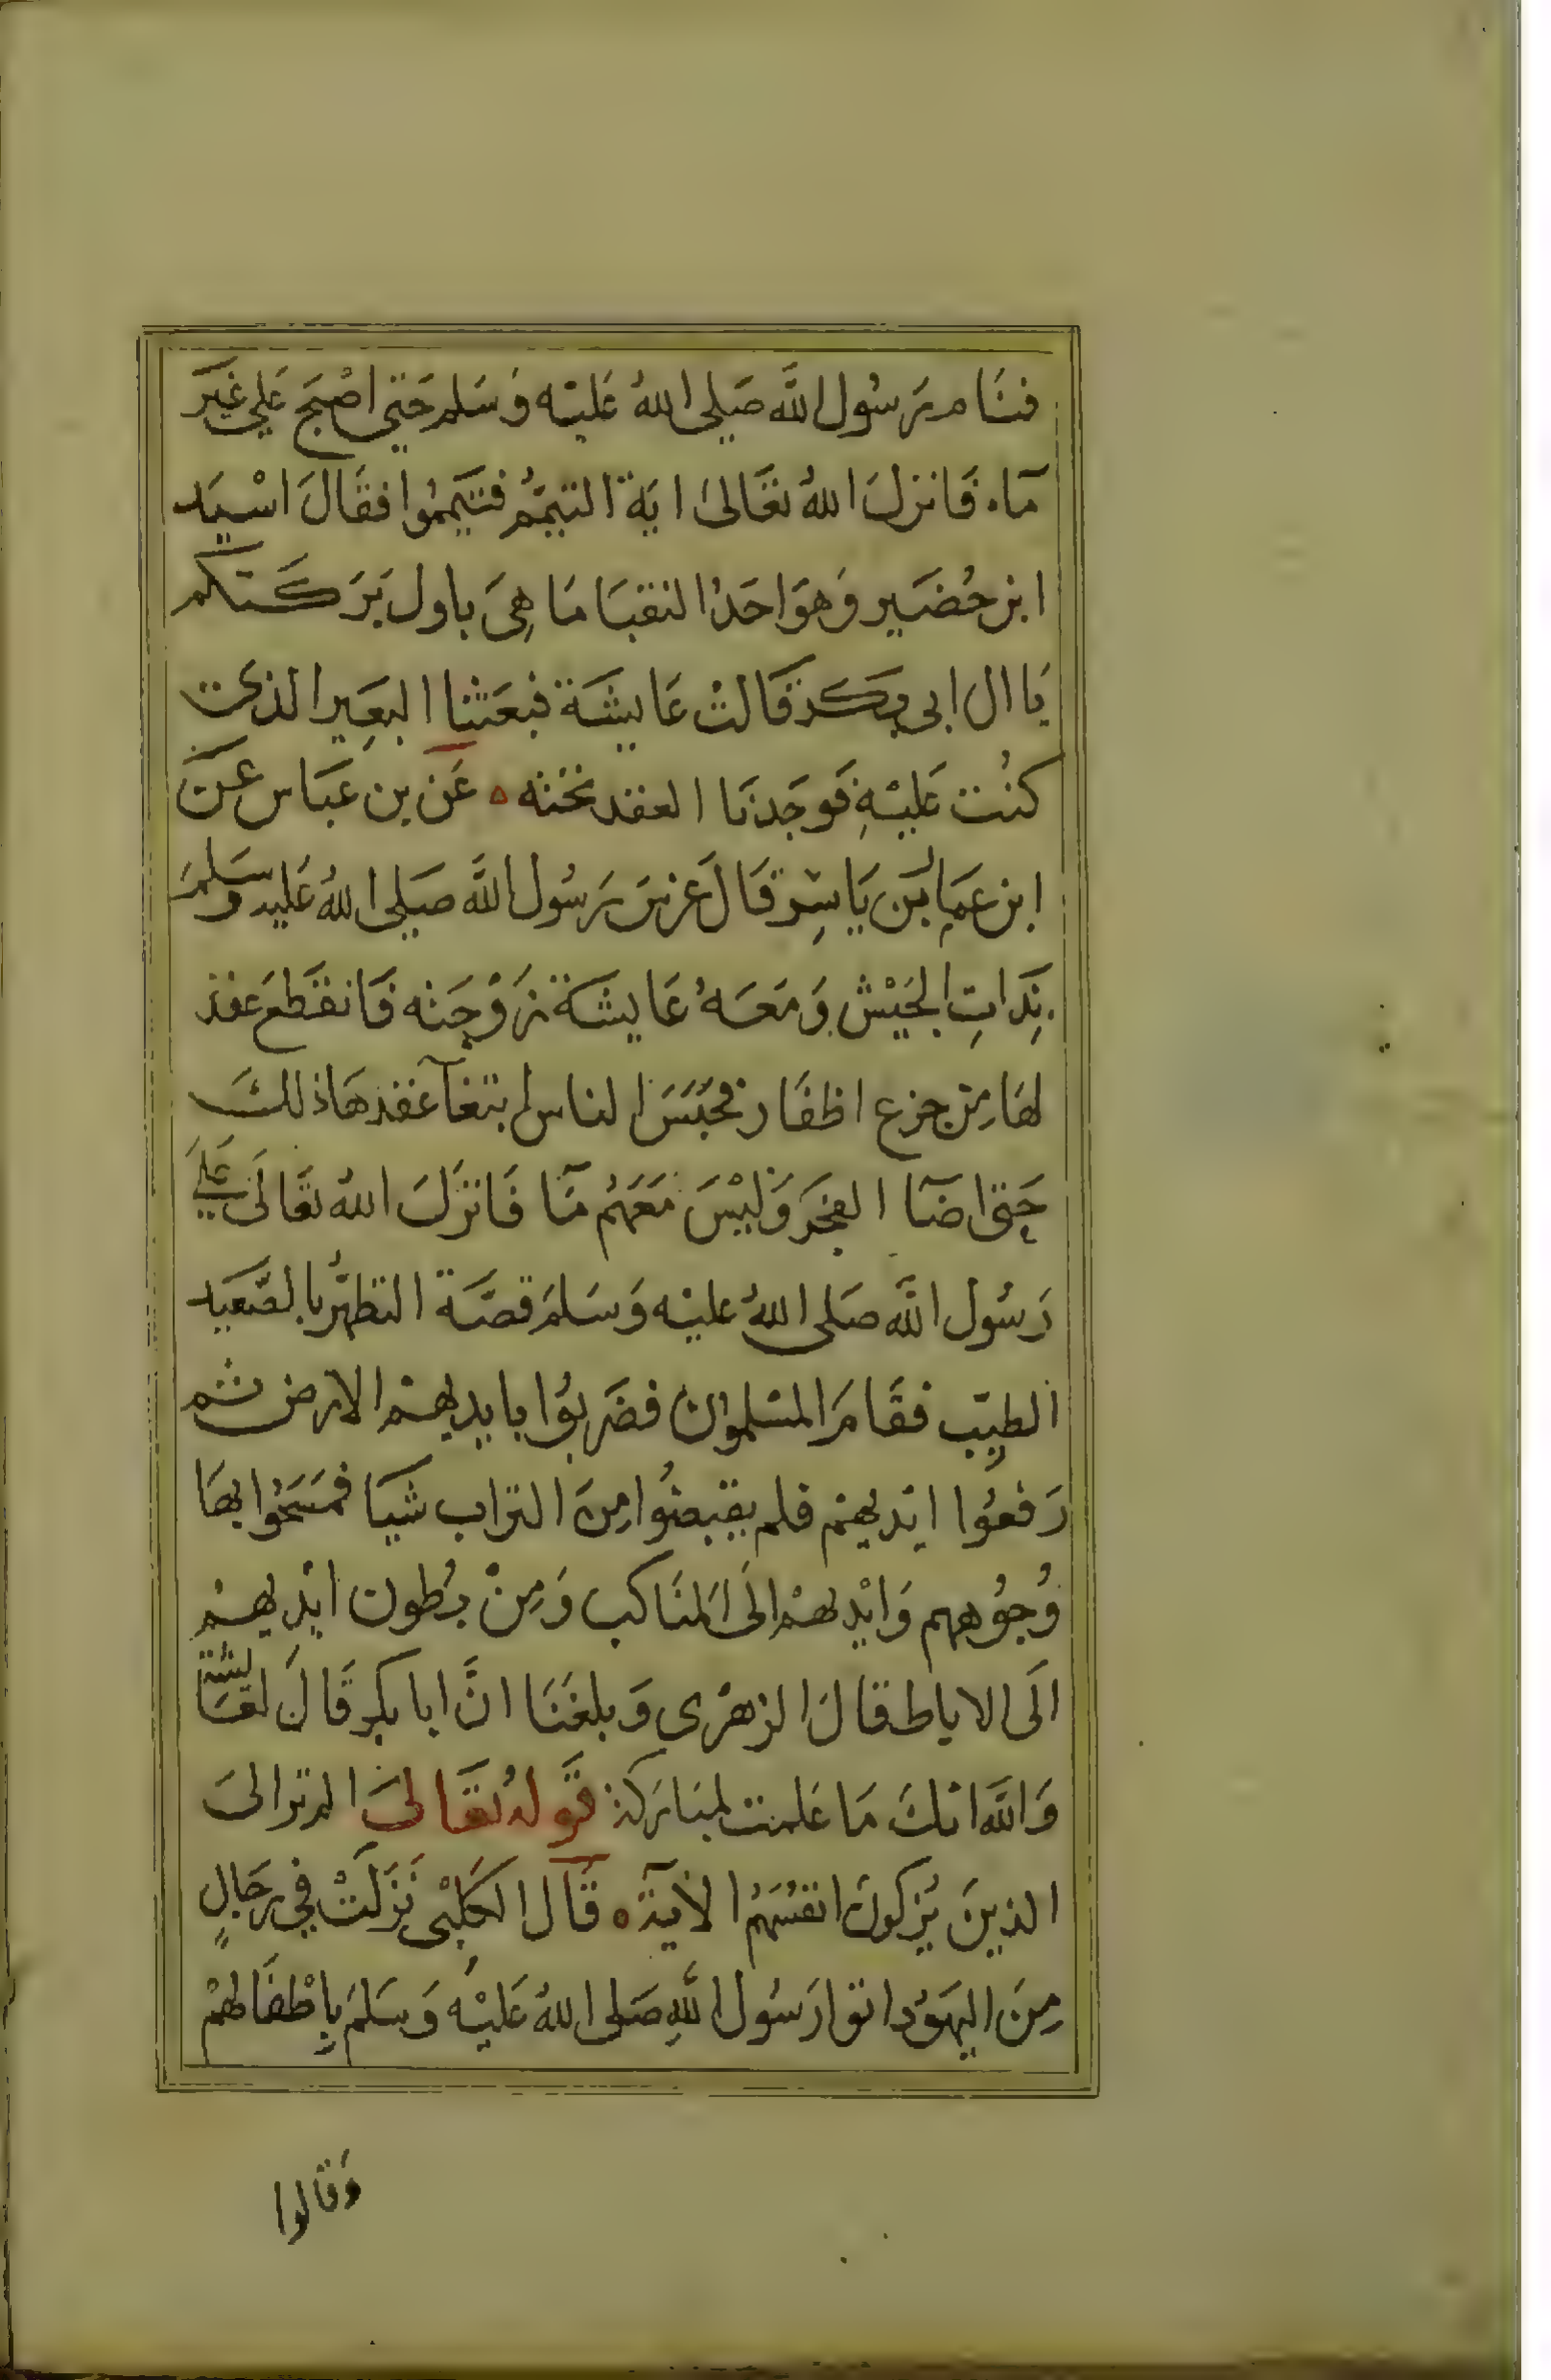 فنَام رَسُول اللَّه صَلى اللهُ عَليْه وَسَلم حَتى اصْبَح عَلى غَير
مآء فَانزلَ اللهُ تعَالىَ ايَة التيمّمُ فتيَممُوا فقَالَ اسْيَد
ابن حُضَير وَهوَ احَدُ النقبَا مَا هِىَ باول بَرَكَتكم
يَا ال ابى بكر قَالتْ عَايشَة فبعَثنا البَعِير الذى
كنُت عَليْهِ فَوجَدنَا العقد تحْته ه عَن بن عَبَاس عَن
ابن عمَار بَن يَاسِر قَالَ عرسَ رَسُول اللَّه صَلى اللهُ عَليه وسَلمَ
بِذَاتِ الجَيْش وَمَعَهُ عَايشَة زَوْجَته فَانقَطعَ عقد
لهَا مِن جزع اظفَار فحبَسَ الناس ابتغآ عقدهَا ذلكَ
حَتى اضَآ الفجَر وَليْسَ مَعَهُم مَآ فَانزَلَ اللهُ تعَالَى عَلى
رَسُول اللَّه صَلى اللهُ عليْه وَسَلمَ قصَّة التطهُّر بالصَّعيَد
الطيِّب فقَامَ المسْلموُن فضَربوُا بايديهْم الارض ثم
رَفعوُا ايَديهْم فلم يقبضُوا مِنَ التراب شيَا فمَسَحُوا بهَا
وُجوُههم وَايْديهْم الَى المنَاكب وَمِنْ بُطون ايْديهْم
الَى الاباط قالَ الزهْرى وَبلغنَا انَّ ابا بكر قَالَ لعَايشة
وَاللَّه انكَ مَا عَلمت لمبَاركة قَولهُ تعَالىَ الم تر الىَ
الذينَ يُزكونَ انفسُهُمْ الآية ه قَال الكَلبْى نَزَلَتْ فى رجَالٍ
مِنَ اليهَوُد اتوا رَسُول اللَّهِ صَلى اللهُ عَليْه وَسَلمَ بِاطْفَالهمْ
وَقالوا